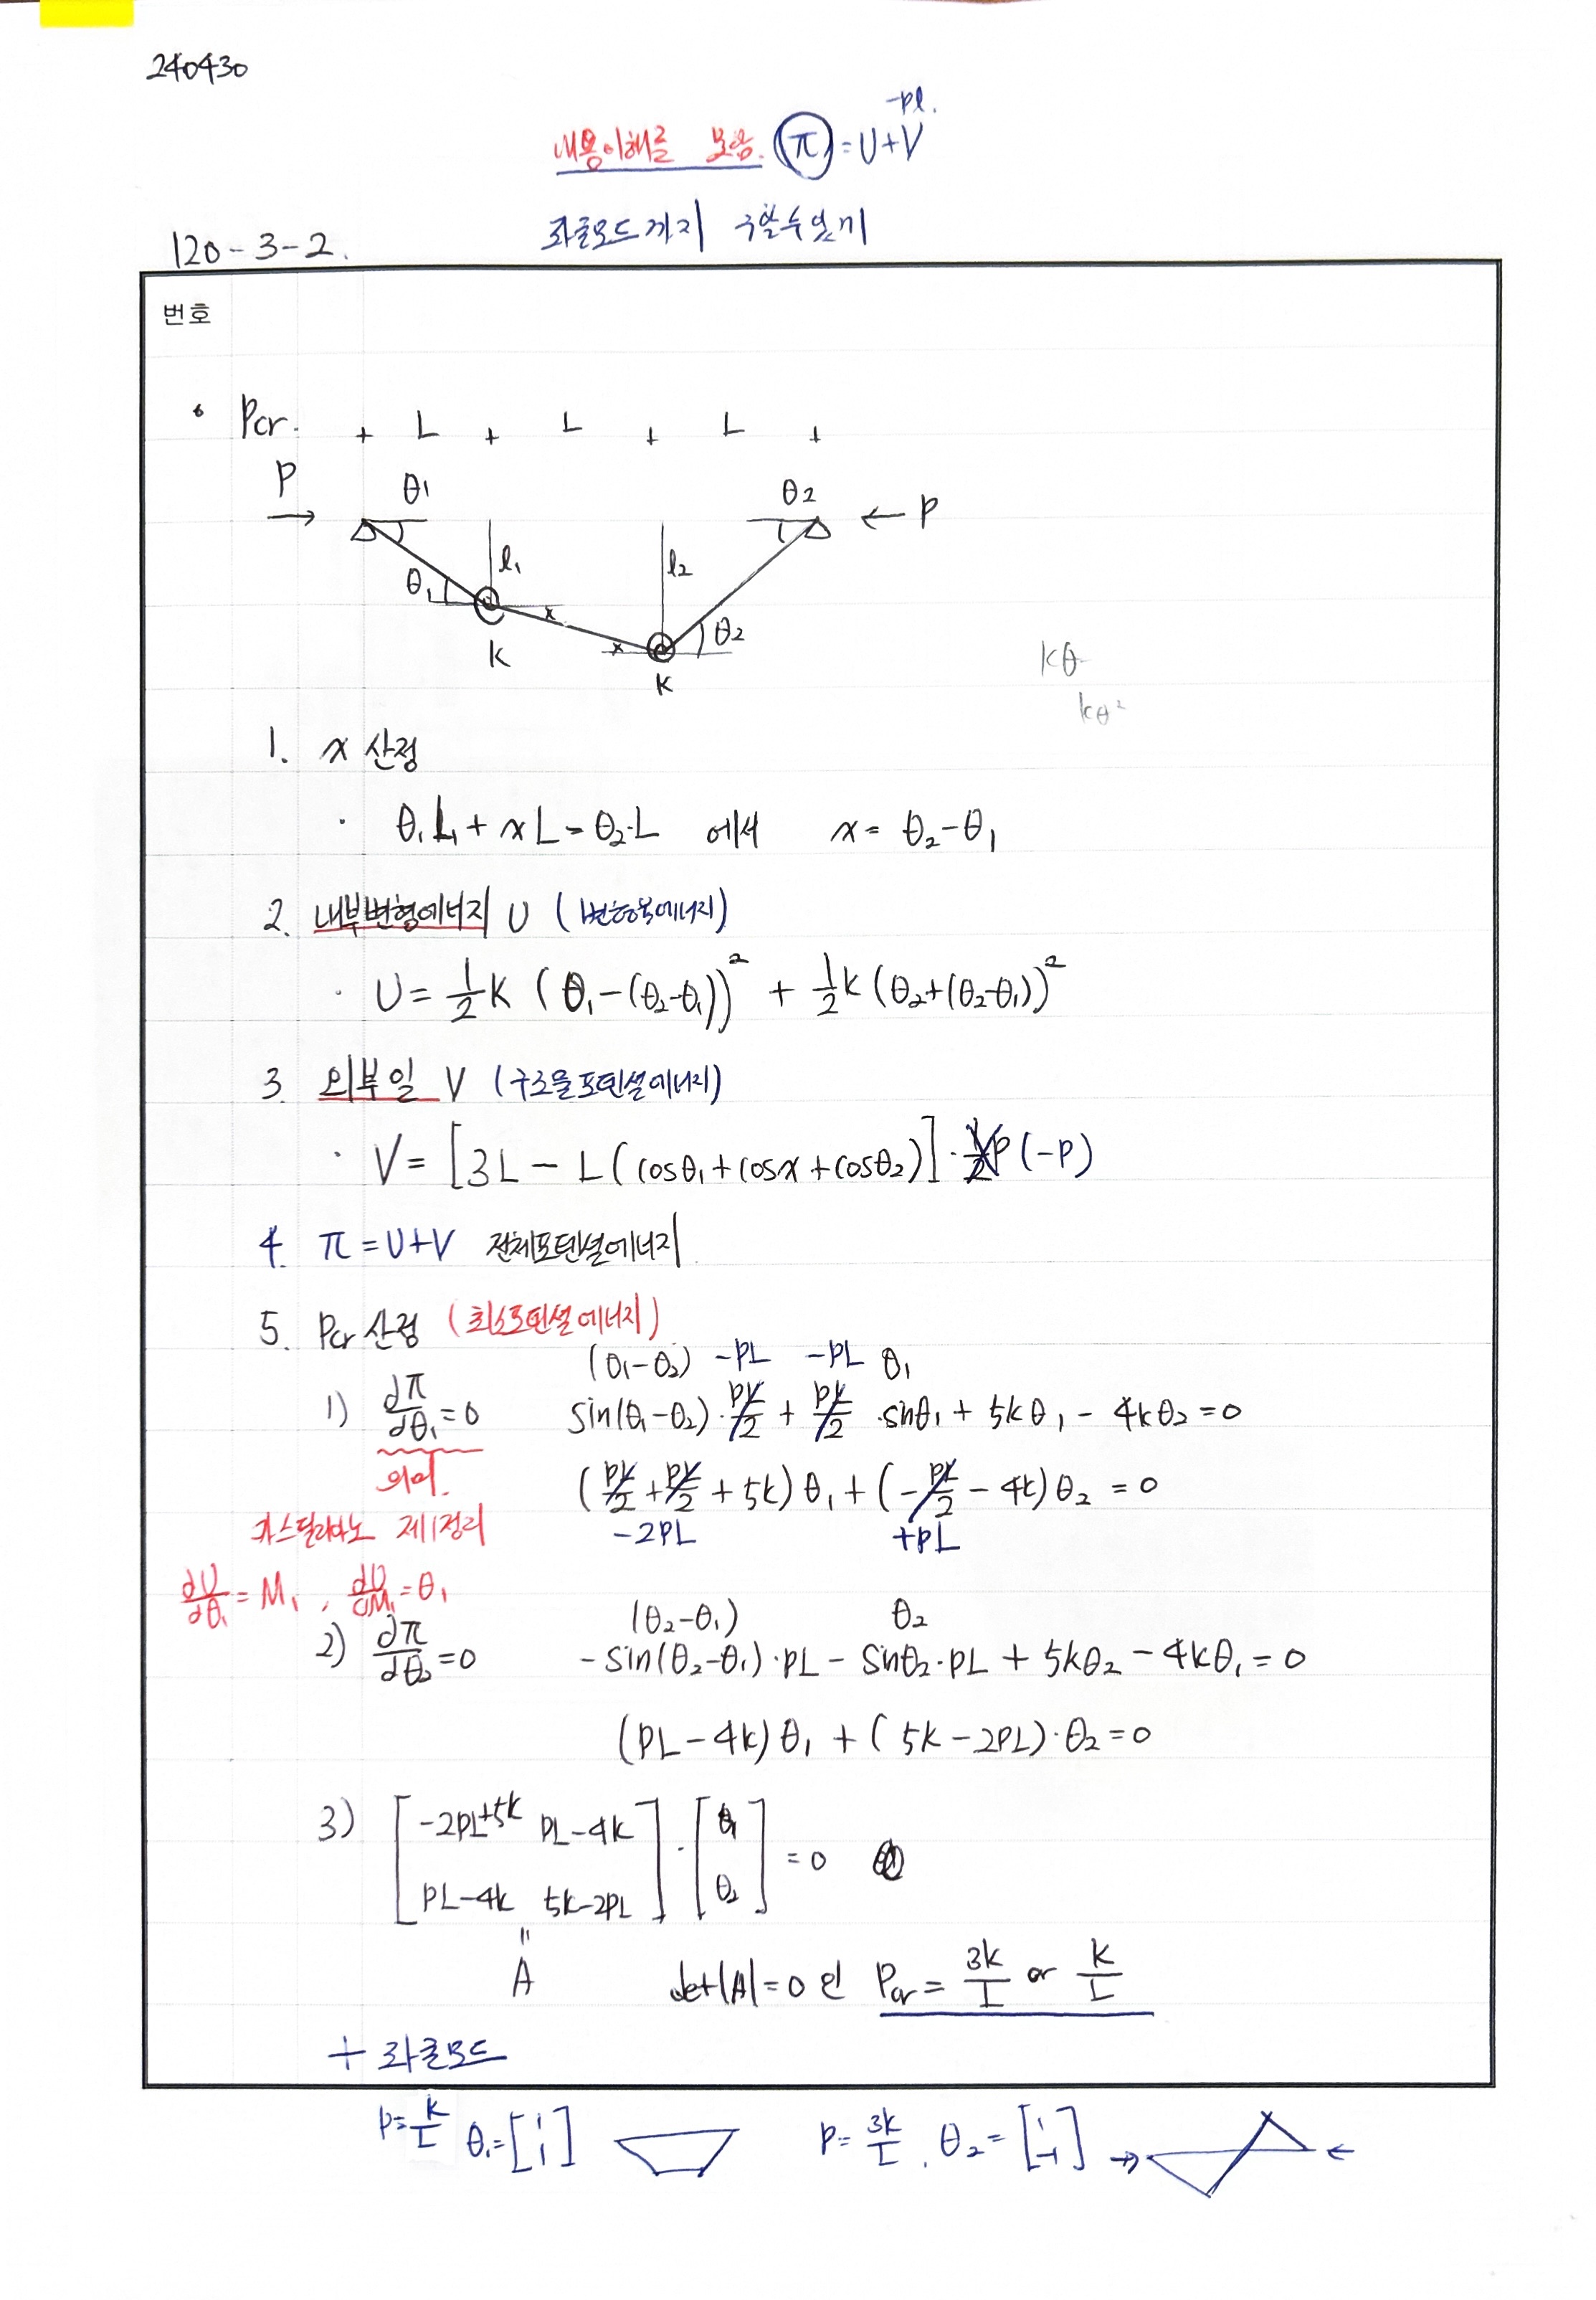 240430
-pl.
내용이해를 못함. π = U+V
좌굴모드까지 구할수있기
120-3-2.
번호
Pcr. + L + L + L +
P θ1 θ2 ← P
l1 l2
θ1 x x θ2
k k
kθ
kθ²
1. x 산정
· θ1L + xL = θ2·L 에서 x = θ2-θ1
2. 내부변형에너지 U (변형에너지)
· U = 1/2 k (θ1-(θ2-θ1))² + 1/2 k (θ2+(θ2-θ1))²
3. 외부일 V (구조물포텐셜에너지)
· V = [3L - L(cosθ1+cosx+cosθ2)]·1/2P (-P)
4. π = U+V 전체포텐셜에너지
5. Pcr 산정 (최소포텐셜에너지)
(θ1-θ2) -PL -PL θ1
1) ∂π/∂θ1 = 0 sin(θ1-θ2)·PL/2 + PL/2 ·sinθ1 + 5kθ1 - 4kθ2 = 0
의미. (PL/2 + PL/2 + 5k)θ1 + (-PL/2 - 4k)θ2 = 0
카스틸리아노 제1정리 -2PL +PL
∂U/∂θ1 = M1, ∂U/∂M1 = θ1
(θ2-θ1) θ2
2) ∂π/∂θ2 = 0 -sin(θ2-θ1)·PL - sinθ2·PL + 5kθ2 - 4kθ1 = 0
(PL-4k)θ1 + (5k-2PL)·θ2 = 0
3) [-2PL+5k PL-4k] · [θ1] = 0
[PL-4k 5k-2PL] [θ2]
=
A det|A|=0 인 Pcr = 3k/L or k/L
+ 좌굴모드
P = k/L θ1 = [1 1] P = 3k/L, θ2 = [1 -1] → ←